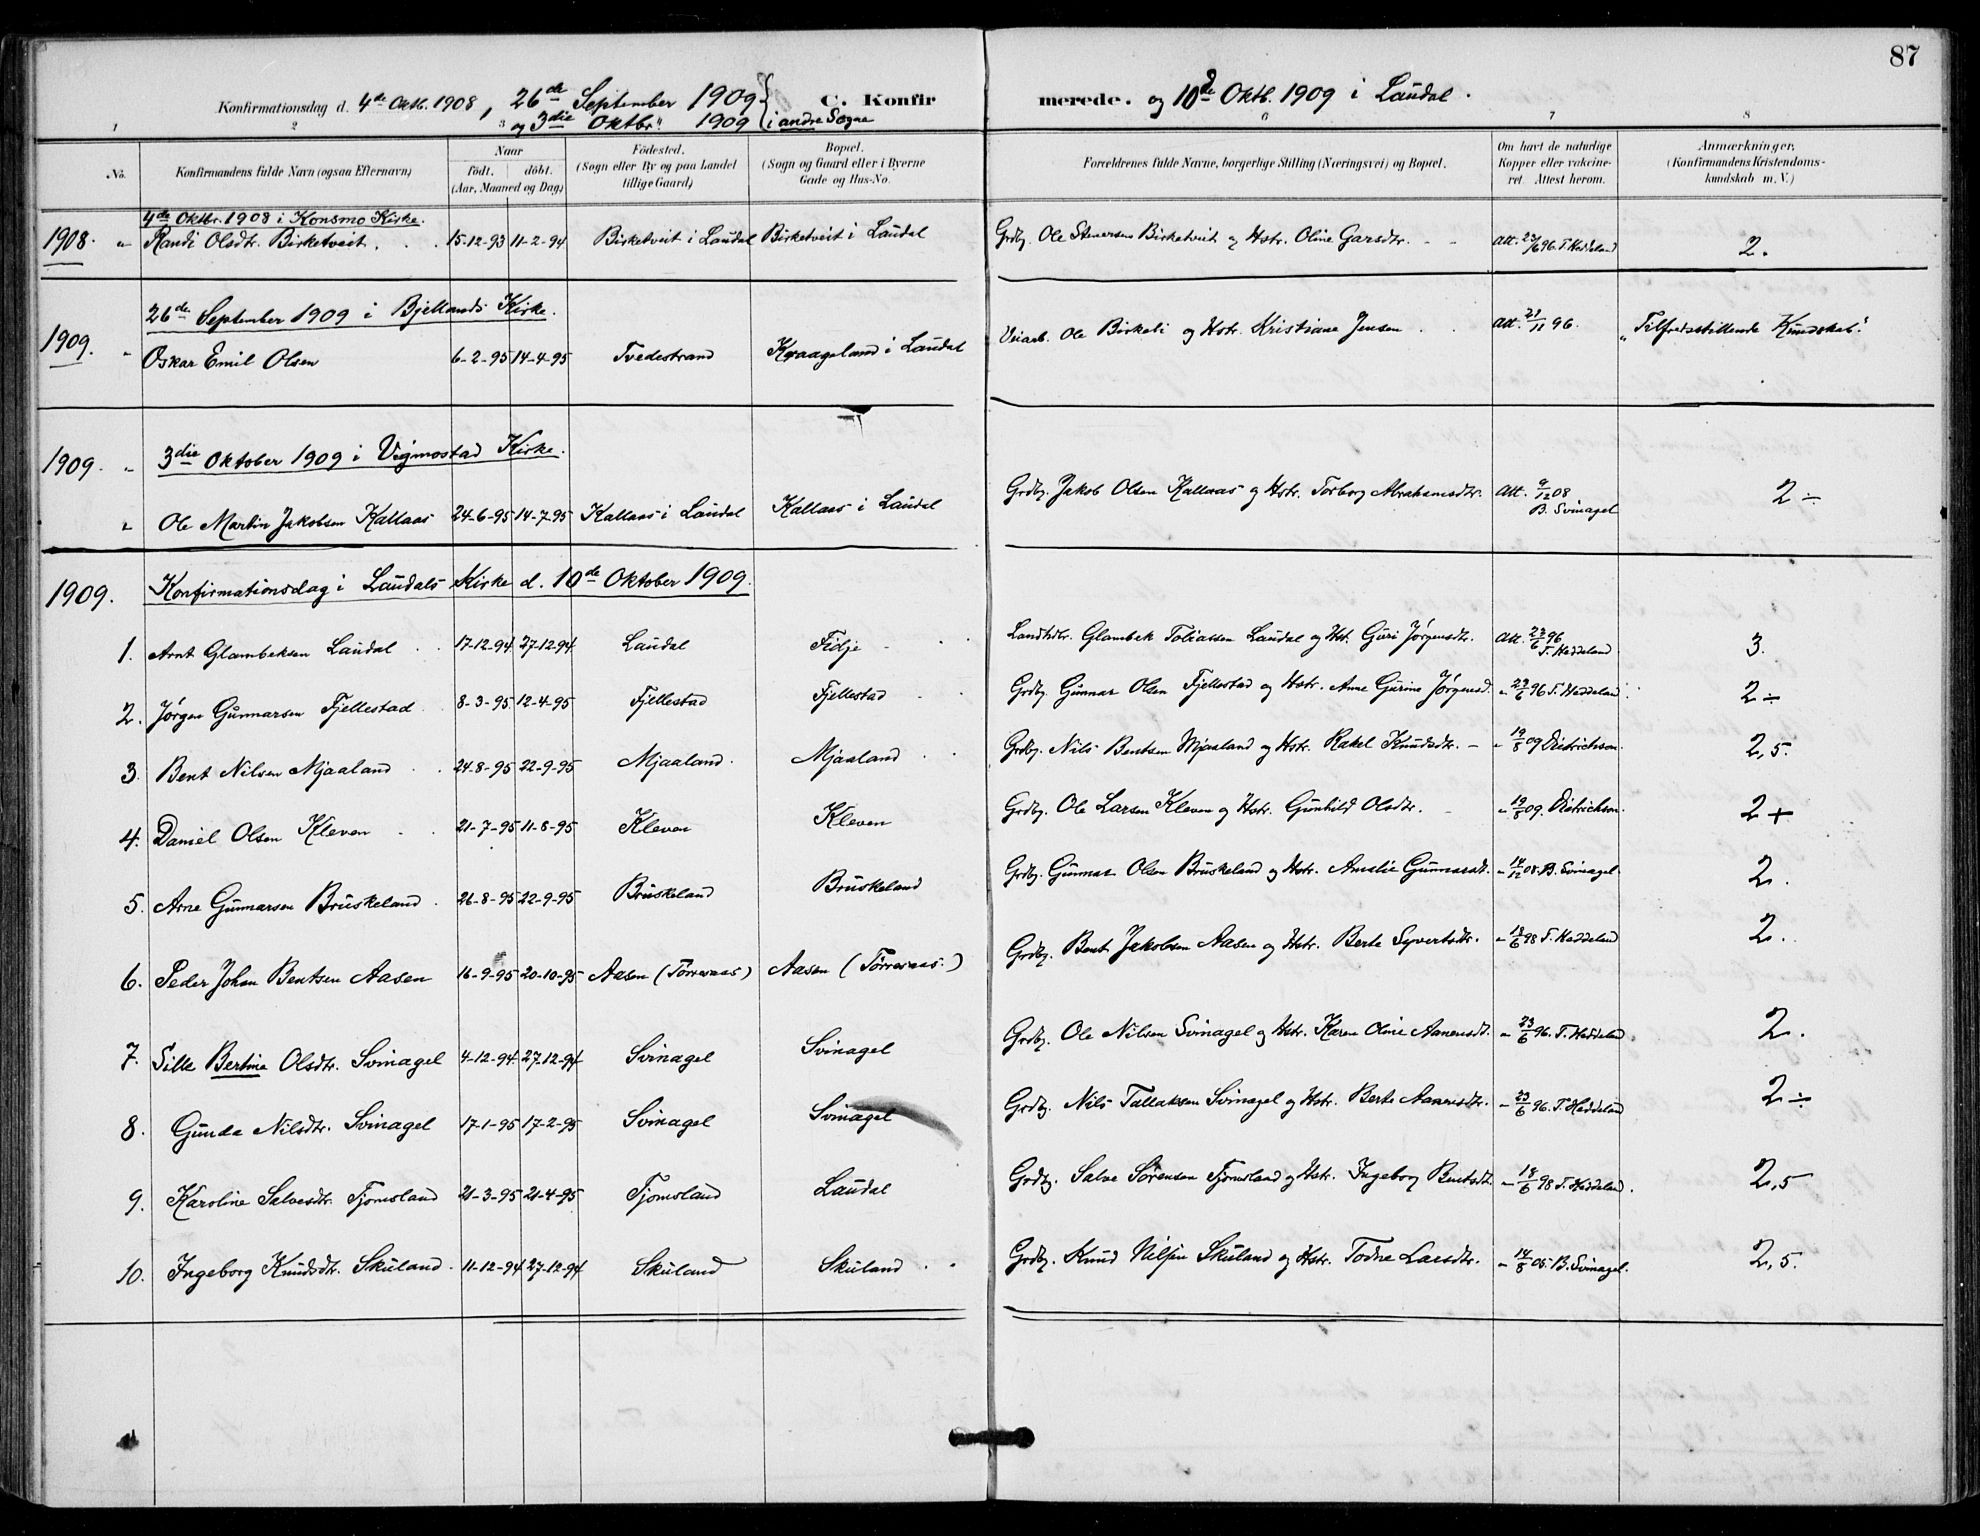 87
Konfirmationsdag d. 4de Oktb. 1908, 26de September 1909 C. Konfirmerede. og 10de Oktb. 1909 i Laudal.
og 3die Oktbr. 1909 i andre Sogne
1 2 3 6 7 8
No. Konfirmandens fulde Navn (ogsaa Efternavn) Naar födt. döbt. (Aar, Maaned og Dag) Födested. (Sogn eller By og paa Landet tillige Gaard) Bopæl. (Sogn og Gaard eller i Byerne Gade og Hus-No. Forældrenes fulde Navne, borgerlige Stilling (Næringsvei) og Bopæl. Om havt de naturlige Kopper eller vakcineret. Attest herom. Anmærkninger. (Konfirmandens Kristendomskundskab m. V.)
4de Oktbr. 1908 i Konsmo Kirke.
1908. " Randi Olsdtr. Birketveit. 15-12-93 11-2-94 Birketveit i Laudal Birketveit i Laudal Grdbg. Ole Stenersen Birketveit og Hstr. Oline Garsdtr. Att. 23/6 96. T. Heddeland 2.
26de September 1909 i Bjellands Kirke.
1909. " Oskar Emil Olsen 6-2-95 14-4-95 Tvedestrand Kraageland i Laudal Veiarb. Ole Birkeli og Hstr. Kristiane Jensen Att. 21/11 96. "Tilfredsstillende Kundskab."
1909. " 3die Oktober 1909 i Vigmostad Kirke.
" Ole Martin Jakobsen Kallaas 24-6-95 14-7-95 Kallaas i Laudal Kallaas i Laudal Grdbg. Jakob Olsen Kallaas og Hstr. Torborg Abrahamsdtr. Att. 9/12 08 B. Svinagel 2÷
1909. Konfirmationsdag i Laudals Kirke d. 10de Oktober 1909.
1. Arnt Glambeksen Laudal 17-12-94 27-12-94 Laudal Fidje Landhdlr. Glambek Tobiassen Laudal og Hst. Guri Jørgensdtr. Att. 23/6 96 T. Heddeland 3.
2. Jørgen Gunnarsen Fjellestad 8-3-95 12-4-95 Fjellestad Fjellestad Grdbg. Gunnar Olsen Fjellestad og Hstr. Anne Gurine Jørgensd. " 23/6 96 T. Heddeland 2÷
3. Bent Nilsen Mjaaland 24-8-95 22-9-95 Mjaaland Mjaaland Grdbg. Nils Bentsen Mjaaland og Hstr. Rakel Knudsdtr. " 19/8 09 Dietrichson. 2,5.
4. Daniel Olsen Kleven 21-7-95 11-8-95 Kleven Kleven Grdbg. Ole Larsen Kleven og Hstr. Gunhild Olsdtr. " 19/8 09. Dietrichson. 2+
5. Arne Gunnarsen Bruskeland 26-8-95 22-9-95 Bruskeland Bruskeland Grdbg. Gunnar Olsen Bruskeland og Hstr. Amalie Gunnarsdt. " 14/12 08. B. Svinagel. 2.
6. Peder Johan Bentsen Aasen 16-9-95 20-10-95 Aasen (Tørresaas) Aasen (Tørresaas.) Grdbg. Bent Jakobsen Aasen og Hstr. Berte Syvertsdtr. " 18/6 98 T. Heddeland 2.
7. Sille Bertine Olsdtr. Svinagel 4-12-94 27-12-94 Svinagel Svinagel Grdbg. Ole Nilsen Svinagel og Hstr. Karen Oline Aanensdt. " 23/6 96. T. Heddeland 2.
8. Gunda Nilsdtr. Svinagel 17-1-95 17-2-95 Svinagel Svinagel Grdbg. Nils Tallaksen Svinagel og Hstr. Berte Aanensdtr. " 23/6 96. T. Heddeland 2÷
9. Karoline Salvesdtr. Tjomsland 21-3-95 21-4-95 Tjomsland Laudal Grdbg. Salve Sørensen Tjomsland og Hstr. Ingeborg Bentsdt. " 18/6 98 T. Heddeland. 2,5
10. Ingeborg Knudsdtr. Skuland. 11-12-94 27-12-94 Skuland Skuland Grdbg. Knud Nilsen Skuland og Hstr. Todne Larsdtr. " 14/8 05. B. Svinagel. 2,5.